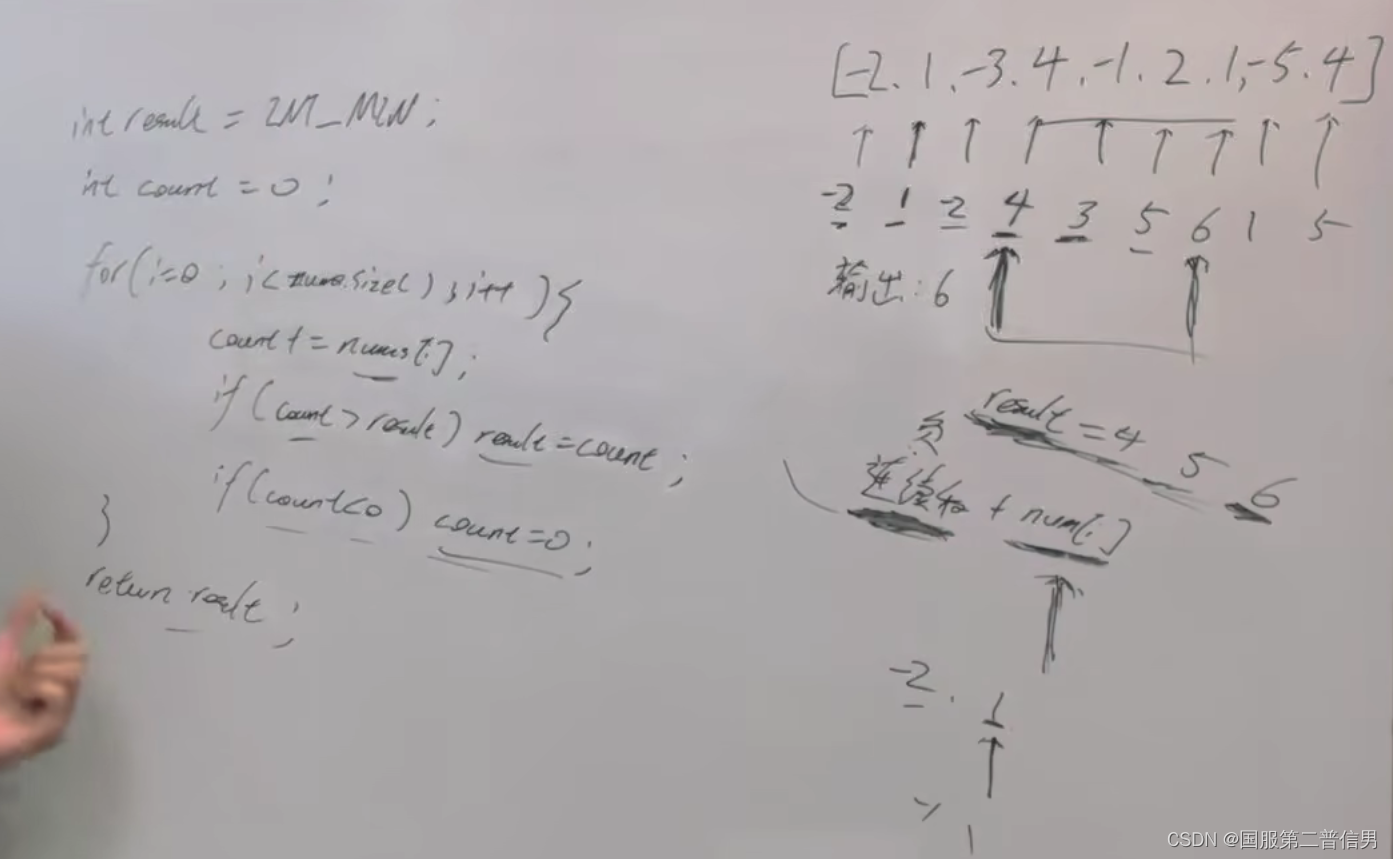 int result = INT_MIN;
int count = 0;
for(i=0; i<nums.size(); i++){
count += nums[i];
if(count>result) result=count;
if(count<0) count=0;
}
return result;
[-2.1.-3.4.-1.2.1,-5.4]
-2 1 -2 4 3 5 6 1 5
输出:6
result=4 5 6
负
连续和 + num[i]
-2. 1
CSDN @国服第二普信男